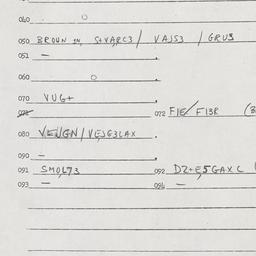 060 . 0
050 BROWN IN, S+VARC3 / VAJS3 / GRUS
051 –
060 0
070 VUG+
072 072 FIE/F13R
080 VEUGN/VESG3LAX
090 –
091 SMOL73 092 DZ+E,5GAXC
093 – 094 –